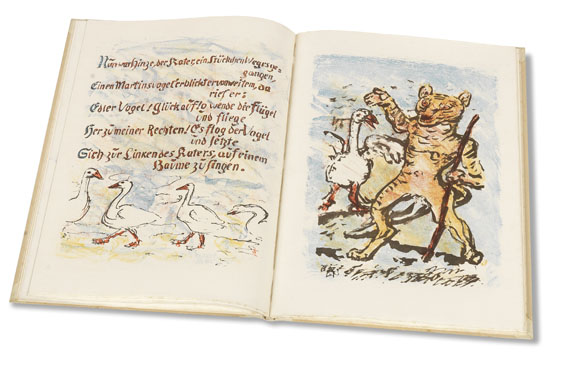 Nun war Hinze, der Kater, ein Stückchen Weges ge-
gangen,
Einen Martinsvogel erblickt er von weiten, da
rief er:
Edler Vogel! Glück auf! o wende die Flügel
und fliege
Her zu meiner Rechten! Es flog der Vogel
und setzte
Sich zur Linken des Katers, auf einem
Baume zu singen.